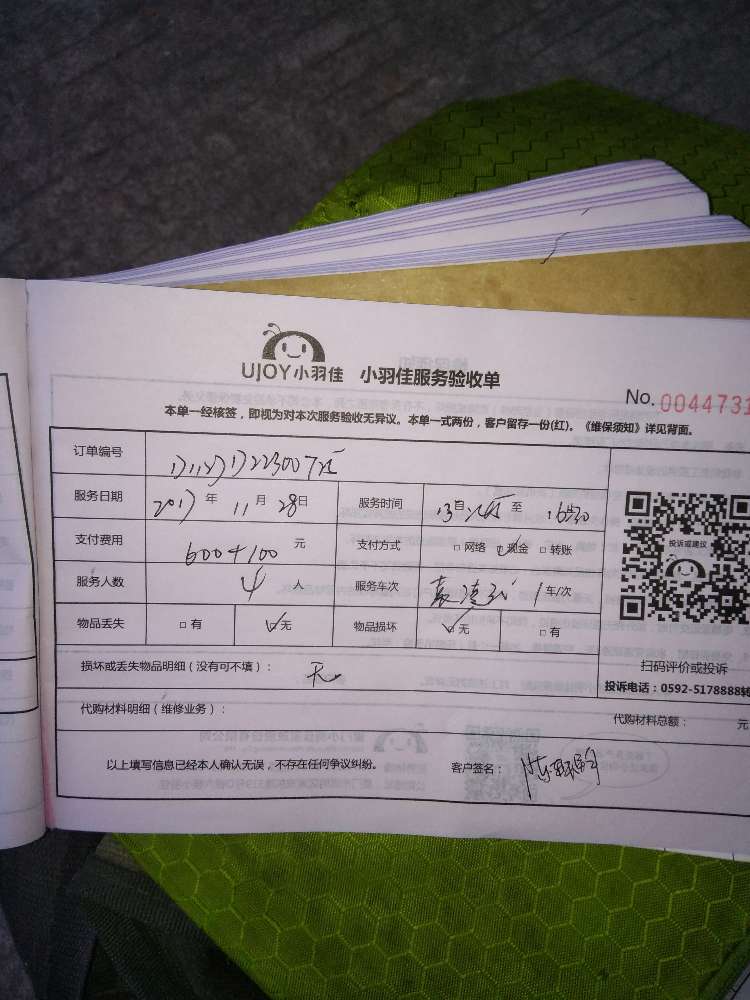 UJOY小羽佳 小羽佳服务验收单
No. 0044731
本单一经核签，即视为对本次服务验收无异议。本单一式两份，客户留存一份(红)。《维保须知》详见背面。
订单编号
服务日期 2017 年 11 月 28 日 服务时间 至
支付费用 600+100 元 支付方式 □ 网络 ☑ 现金 □ 转账
服务人数 4 人 服务车次 1 车/次
物品丢失 □ 有 ☑ 无 物品损坏 ☑ 无 □ 有
投诉或建议
扫码评价或投诉
投诉电话：0592-5178888转
损坏或丢失物品明细（没有可不填）： 无
代购材料明细（维修业务）： 代购材料总额： 元
以上填写信息已经本人确认无误，不存在任何争议纠纷。 客户签名：